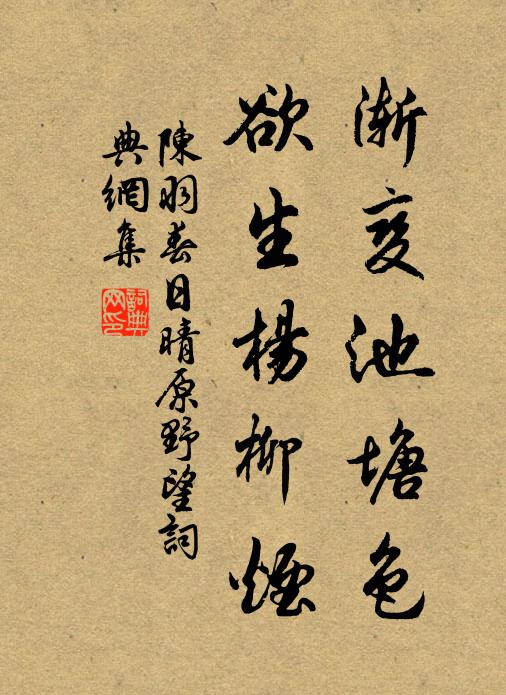 漸变池塘色
欲生楊柳煙
陳羽春日晴原野望詞
典網集
詞典
网印